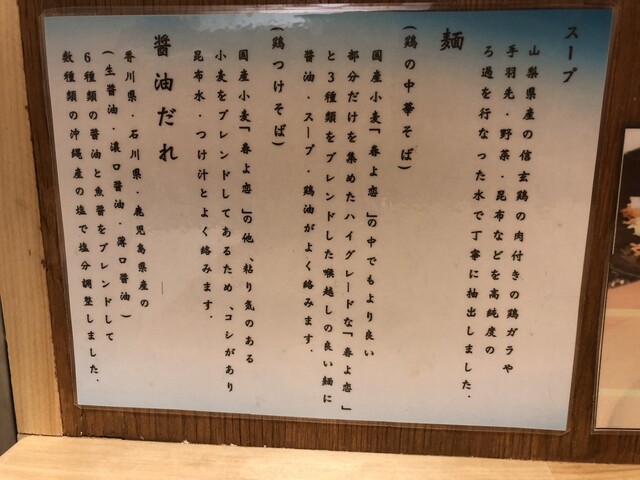 スープ
山梨県産の信玄鶏の肉付きの鶏ガラや
手羽先・野菜・昆布などを高純度の
ろ過を行なった水で丁寧に抽出しました．
麺
（鶏の中華そば）
国産小麦「春よ恋」の中でもより良い
部分だけを集めたハイグレードな「春よ恋」
と３種類をブレンドした喉越しの良い麺に
醤油・スープ・鶏油がよく絡みます．
（鶏つけそば）
国産小麦「春よ恋」の他、粘り気のある
小麦をブレンドしてあるため、コシがあり
昆布水・つけ汁とよく絡みます．
醤油だれ
香川県・石川県・鹿児島県産の
（生醤油・濃口醤油・薄口醤油）
６種類の醤油と魚醤をブレンドして
数種類の沖縄産の塩で塩分調整しました．